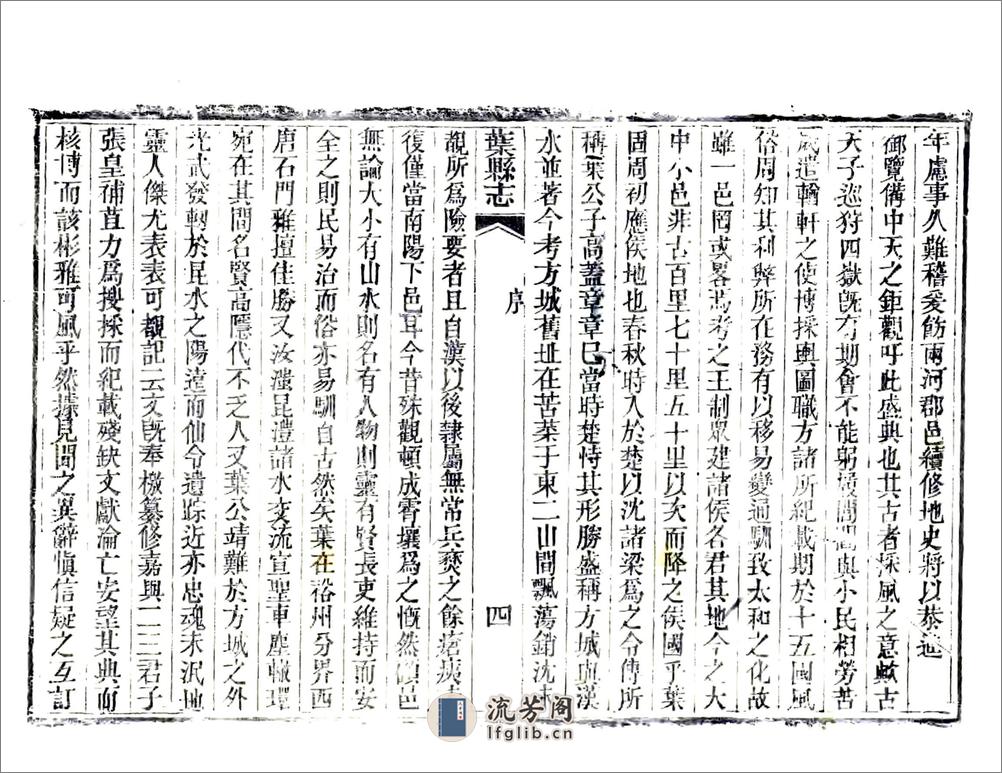 年慮事久難稽爰飭兩河郡邑續修地史將以恭進
御覽備中天之鉅觀吁此盛典也其古者採風之意歟古
天子巡狩四嶽旣有期會不能躬歷閭閻與小民相勞苦
歲遣輶軒之使博採輿圖職方諸所紀載期於十五國風
俗周知其利弊所在務有以移易變通馴致太和之化故
雖一邑罔或畧焉考之王制眾建諸侯各君其地今之大
中小邑非古百里七十里五十里以次而降之侯國乎葉
固周初應侯地也春秋時入於楚以沈諸梁爲之令傳所
稱葉公子高蓋章章已當時楚恃其形勝盛稱方城與漢
水並著今考方城舊址在苦菜于東二山間飄蕩銷沈
葉縣志
序
四
觀所爲險要者且自漢以後隷屬無常兵燹之餘瘡痍
復僅當南陽下邑耳今昔殊觀頓成霄壤爲之慨然 邑
無論大小有山水則名有人物則靈有賢長吏維持而安
全之則民易治而俗亦易馴自古然矣葉在裕州分界西
唐石門雅擅佳勝又汝㶏昆澧諸水交流宣聖車塵轍環
宛在其間名賢高隱代不乏人又葉公靖難於方城之外
光武發軔於昆水之陽遠而仙令遺踪近亦忠魂未泯地
靈人傑尤表表可觀記云文旣奉檄纂修嘉與二三君子
張皇補苴力爲搜採而紀載殘缺文獻淪亡安望其典而
核博而該彬雅可風乎然據見聞之異辭愼信疑之互訂
流芳阁
lfglib.cn